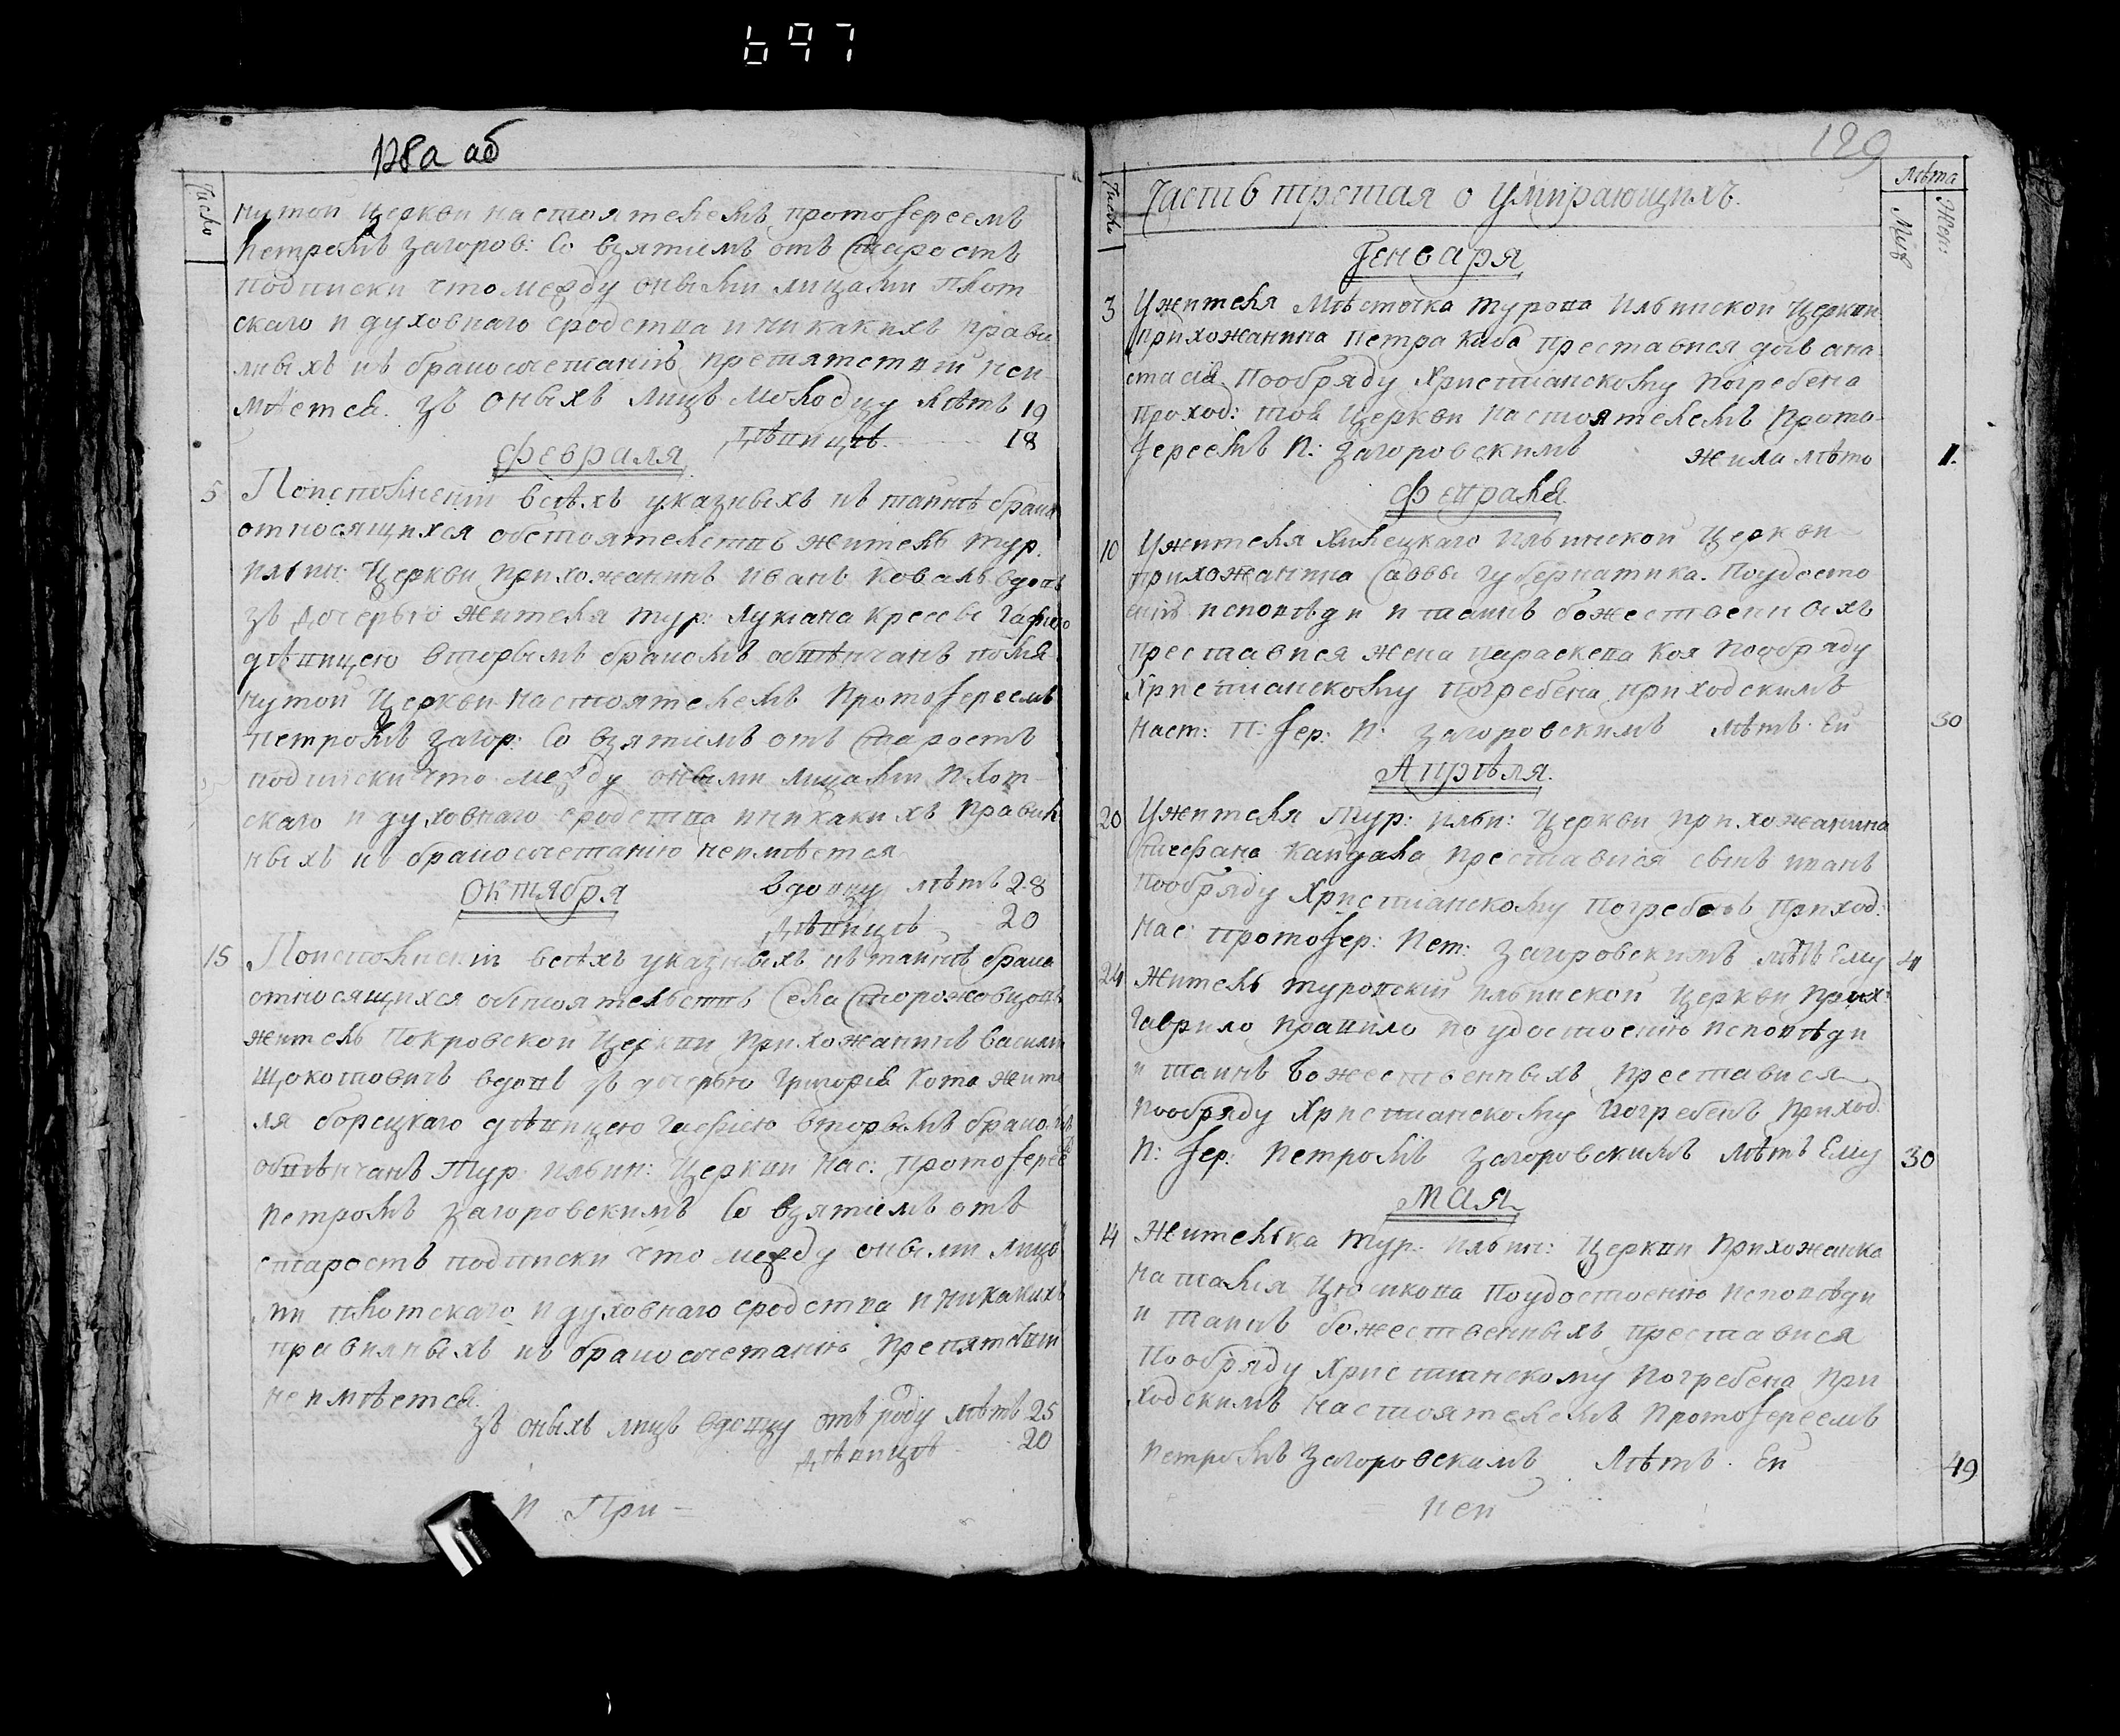 697
128а об
Число
нутой Церкви настоятелемъ протоіереемъ
Петромъ Загоров: Со взятіемъ отъ Старостъ
подписки что между оными лицами плот
скаго и духовнаго сродства и никакихъ прави
лныхъ къ бракосочетанію препятствій неи
мѣется. зъ оныхъ лицъ молодцу лѣтъ 19
дѣвицѣ 18
Февраля
5 Поисполненіи всѣхъ указныхъ къ тайнѣ брака
относящихся обстоятелствъ житель тур.
Ильин: Церкви прихожанинъ Иванъ Коваль вдовъ
зъ дочерью жителя тур: Лукіана Гафіею
дѣвицею вторымъ бракомъ обвѣнчанъ помя
нутой Церкви Настоятелемъ Протоіереемъ
Петромъ Загор: Со взятіемъ отъ Старостъ
подписки что между оными лицами плот
скаго и духовнаго сродства иникакихъ правил
ныхъ къ бракосочетанію неимѣется
вдовцу лѣтъ 28
Октября
дѣвицѣ 20
15 Поисполненіи всѣхъ указныхъ къ тайнѣ брака
относящихся обстоятельствъ Села Сторожовцовъ
житель Покровской Церкви Прихожанинъ Василій
Щокотовичъ вдовъ зъ дочерью Григорія Кота жите
ля борецкаго дѣвицею Гафіею вторымъ бракомъ
обвѣнчанъ Тур Ильин: Церкви Нас: Протоіерее
Петромъ Загоровскимъ Со взятіемъ отъ
старостъ подписки что между оными лица
ми плотскаго и духовнаго сродства иникакихъ
правилныхъ къ бракосочетанію Препятствій
неимѣется.
зъ оныхъ лицъ вдовцу отъ роду лѣтъ 25
дѣвицѣ 20
И При-
129
Число
Часть третая о Умирающихъ.
Лѣта
Муж
Жен:
Генваря
3 Ужителя Мѣсточка турова Ильинской Церкви
прихожанина Петра Каба Преставися дщь ана
стасія. Пообряду Христіанскому Погребена
проход: той Церкви Настоятелемъ Прото-
іереемъ П: Загоровскимъ жила лѣто 1.
Февраля
10 Ужителя Хилецкаго Ильинской Церкви
прихожанина Саввы Губернатика. Поудосто
еніи исповѣди и таинъ божественныхъ
преставися жена параскева Коя Пообряду
Христіанскому погребена приходскимъ
Наст: П: Іер: П: Загоровскимъ лѣтъ Ей 30
Апрѣля
20 Ужителя Тур: ильи: Церкви прихожанина
Кацдала преставися сынъ иванъ
пообряду Христіанскому погребенъ приход:
Нас: Протоіер: Пет: Загоровскимъ лѣтъ Ему 4
24 Житель туровскій ильинской Церкви Прих:
Гаврило Правило поудостоенію исповѣди
и таинъ Божественныхъ преставися
пообряду Христіанскому Погребенъ Приход.
П: Іер: Петромъ Загоровскимъ лѣтъ Ему 30
Мая
14 Жителька тур: ильин: Церкви Прихожанка
Наталія Цюликова Поудостоенію исповѣди
и таинъ божественныхъ преставися
Пообряду Христіанскому Погребена При
ходскимъ Настоятелемъ Протоіереемъ
Петромъ Загоровскимъ Лѣтъ. Ей 49